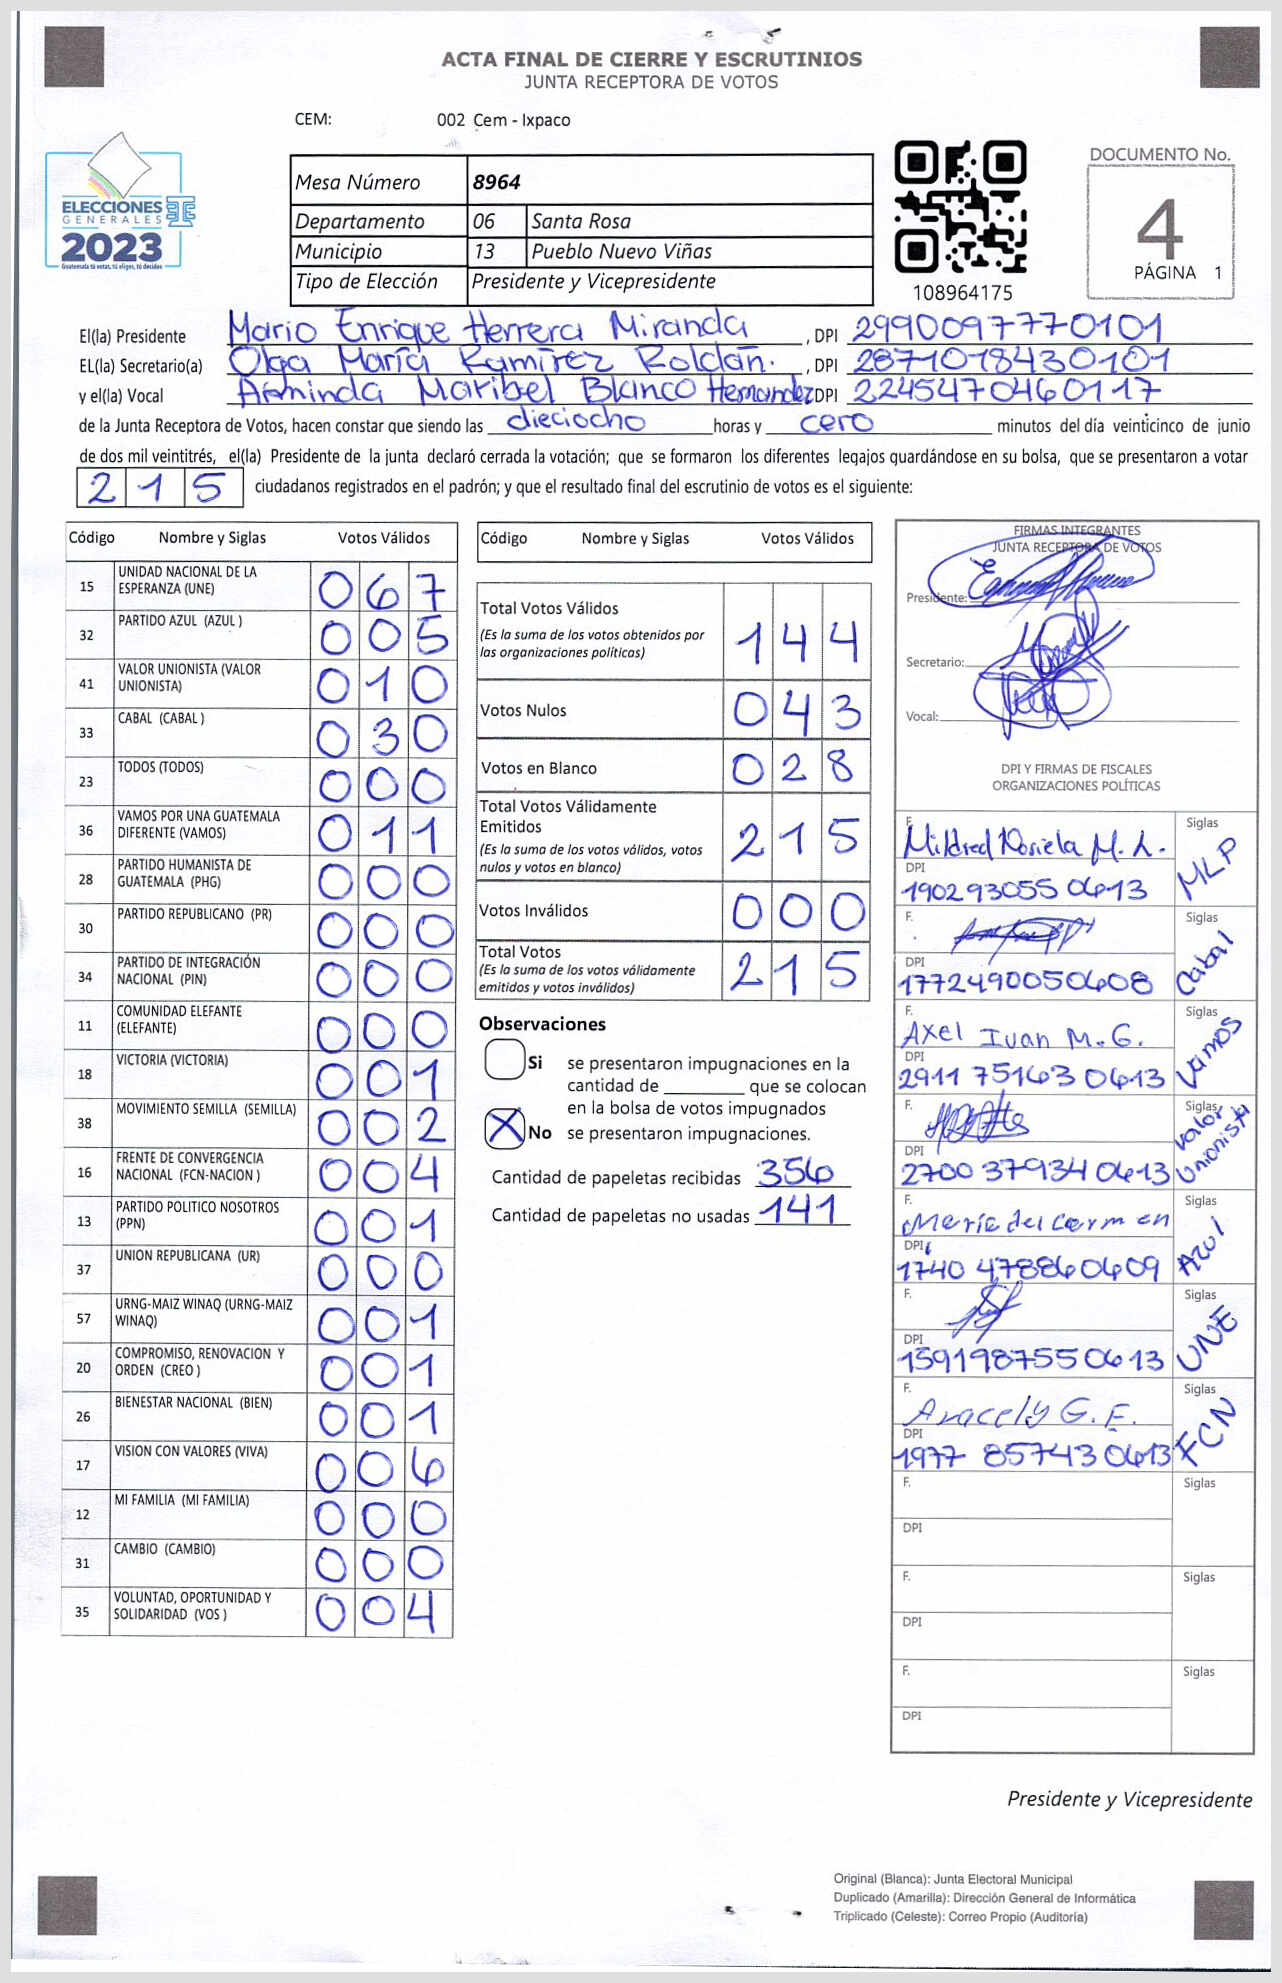 ACTA FINAL DE CIERRE Y ESCRUTINIOS
JUNTA RECEPTORA DE VOTOS
CEM: 002 Cem - Ixpaco
ELECCIONES
GENERALES
2023
Guatemala tú votas, tú eliges, tú decides
Mesa Número 8964
Departamento 06 Santa Rosa
Municipio 13 Pueblo Nuevo Viñas
Tipo de Elección Presidente y Vicepresidente
108964175
DOCUMENTO No.
4
PÁGINA 1
El(la) Presidente Mario Enrique Herrera Miranda, DPI 2990097770101
EL(la) Secretario(a) Olga María Ramírez Roldán., DPI 2871018430101
y el(la) Vocal Arminda Maribel Blanco Hernandez DPI 2245470460117
de la Junta Receptora de Votos, hacen constar que siendo las dieciocho horas y cero minutos del día veinticinco de junio
de dos mil veintitrés, el(la) Presidente de la junta declaró cerrada la votación; que se formaron los diferentes legajos guardándose en su bolsa, que se presentaron a votar
215 ciudadanos registrados en el padrón; y que el resultado final del escrutinio de votos es el siguiente:
Código Nombre y Siglas Votos Válidos
15 UNIDAD NACIONAL DE LA ESPERANZA (UNE) 067
32 PARTIDO AZUL (AZUL ) 005
41 VALOR UNIONISTA (VALOR UNIONISTA) 010
33 CABAL (CABAL ) 030
23 TODOS (TODOS) 000
36 VAMOS POR UNA GUATEMALA DIFERENTE (VAMOS) 011
28 PARTIDO HUMANISTA DE GUATEMALA (PHG) 000
30 PARTIDO REPUBLICANO (PR) 000
34 PARTIDO DE INTEGRACIÓN NACIONAL (PIN) 000
11 COMUNIDAD ELEFANTE (ELEFANTE) 000
18 VICTORIA (VICTORIA) 001
38 MOVIMIENTO SEMILLA (SEMILLA) 002
16 FRENTE DE CONVERGENCIA NACIONAL (FCN-NACION ) 004
13 PARTIDO POLITICO NOSOTROS (PPN) 001
37 UNION REPUBLICANA (UR) 000
57 URNG-MAIZ WINAQ (URNG-MAIZ WINAQ) 001
20 COMPROMISO, RENOVACION Y ORDEN (CREO ) 001
26 BIENESTAR NACIONAL (BIEN) 001
17 VISION CON VALORES (VIVA) 006
12 MI FAMILIA (MI FAMILIA) 000
31 CAMBIO (CAMBIO) 000
35 VOLUNTAD, OPORTUNIDAD Y SOLIDARIDAD (VOS ) 004
Código Nombre y Siglas Votos Válidos
Total Votos Válidos 144
(Es la suma de los votos obtenidos por
las organizaciones políticas)
Votos Nulos 043
Votos en Blanco 028
Total Votos Válidamente
Emitidos 215
(Es la suma de los votos válidos, votos
nulos y votos en blanco)
Votos Inválidos 000
Total Votos 215
(Es la suma de los votos válidamente
emitidos y votos inválidos)
Observaciones
Si se presentaron impugnaciones en la
cantidad de ________ que se colocan
en la bolsa de votos impugnados
X No se presentaron impugnaciones.
Cantidad de papeletas recibidas 356
Cantidad de papeletas no usadas 141
FIRMAS INTEGRANTES
JUNTA RECEPTORA DE VOTOS
Presidente:
Secretario:
Vocal:
DPI Y FIRMAS DE FISCALES
ORGANIZACIONES POLÍTICAS
F. Mildred Noriela M. L. Siglas MLP
DPI 1902930550613
F. Siglas Cabal
DPI 1772490050608
F. Axel Ivan M. G. Siglas Vamos
DPI 2911 75163 0613
F. Siglas Valor Unionista
DPI 2700 37934 0613
F. María del Carmen Siglas Azul
DPI 1740 47886 0609
F. Siglas UNE
DPI 1591987550613
F. Aracely G. E. Siglas FCN
DPI 1977 85743 0613
F. Siglas
DPI
F. Siglas
DPI
F. Siglas
DPI
Presidente y Vicepresidente
Original (Blanca): Junta Electoral Municipal
Duplicado (Amarilla): Dirección General de Informática
Triplicado (Celeste): Correo Propio (Auditoría)